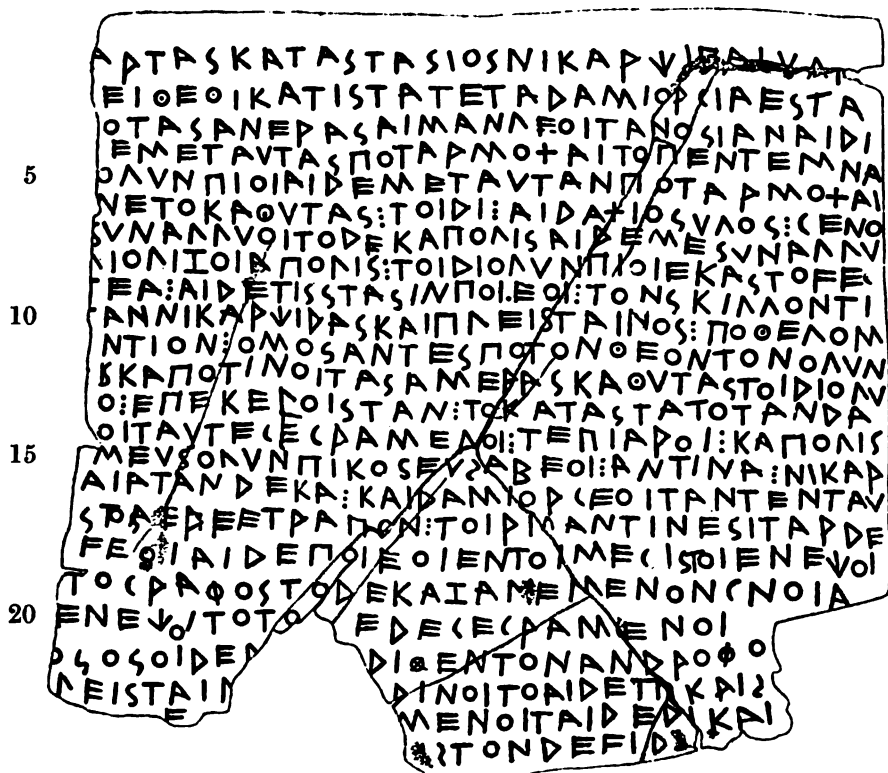 ΑΡΤΑΣΚΑΤΑΣΤΑΣΙΟΣΝΙΚΑΡΨΙΔΑΙ
ΕΙΘΕΟΙΚΑΤΙΣΤΑΤΕΤΑΔΑΜΙΟΡΓΙΑΕΣΤΑ
ΟΤΑΣΑΝΕΡΑΣΑΙΜΑΝΛΕΟΙΤΑΝΟΣΙΑΝΑΙΔΙ
ΕΜΕΤΑΥΤΑΣΠΟΤΑΡΜΟ+ΑΙΤΟΠΕΝΤΕΜΝΑ
5 ΟΛΥΝΠΙΟΙΑΙΔΕΜΕΤΑΥΤΑΝΠΟΤΑΡΜΟ+ΑΙ
ΝΕΤΟΚΑΘΥΤΑΣ⁝ΤΟΙΔΙ⁝ΑΙΔΑ+ΙΟΣΥΛΟΣ⁝ΓΕΝΟ
ΣΥΝΑΛΛΥΟΙΤΟΔΕΚΑΠΟΛΙΣΑΙΔΕΜΕΣΥΝΑΛΛΥ
ΙΟΛΙΞΟΙΑΠΟΛΙΣ⁝ΤΟΙΔΙΟΛΥΝΠΙΟΙΕΚΑΣΤΟϜΕ
ΕΑ⁝ΑΙΔΕΤΙΣΣΤΑΣΙΝΠΟΙΕΟΙ⁝ΤΟΝΣΚΙΛΛΟΝΤΙ
10 ΑΝΝΙΚΑΡΨΙΔΑΣΚΑΙΠΛΕΙΣΤΑΙΝΟΣ⁝ΠΟΘΕΛΟΜ
ΝΤΙΟΝ⁝ΟΜΟΣΑΝΤΕΣΠΟΤΟΝΘΕΟΝΤΟΝΟΛΥΝ
ΣΚΑΠΟΤΙΝΟΙΤΑΣΑΜΕΡΑΣΚΑΘΥΤΑΣΤΟΙΔΙΟΛΥ
Ο⁝ΕΠΕΚΕΡΟΙΣΤΑΝ⁝ΤΟΚΑΤΑΣΤΑΤΟΤΑΝΔΑ
ΟΙΤΑΥΤΕΓΕΓΡΑΜΕΝΟΙ⁝ΤΕΠΙΑΡΟΙ⁝ΚΑΠΟΛΙΣ
15 ΜΕΥΣΟΛΥΝΠΙΚΟΣΕΥΣΑΒΕΟΙ⁝ΑΝΤΙΝΑ⁝ΝΙΚΑΡ
ΑΙΑΤΑΝΔΕΚΑ⁝ΚΑΙΔΑΜΙΟΡΓΕΟΙΤΑΝΤΕΝΤΑΥ
ΣΤΟΑΕΡΕΕΤΡΑΠΟΝ⁝ΤΟΙΡΙΑΝΤΙΝΕΣΙΤΑΡΔΕ
ϜΕΟΙΑΙΔΕΠΟΙΕΟΙΕΝΤΟΙΜΕΓΙΣΤΟΙΕΝΕΨΟΙ
ΤΟΓΡΑΦΟΣΤΟΔΕΚΑΙΑΜΕΜΕΝΟΝΓΝΟΙΑ
20 ΕΝΕΨΟΙΤΟΤΟ ΕΔΕΓΕΓΡΑΜΕΝΟΙ
ΟΣΟΣΟΙΔΕ ΔΙΘΕΝΤΟΝΑΝΔΡΟΦΟ
ΛΕΙΣΤΑΙΝ ΔΙΝΟΙΤΟΑΙΔΕΤΙΚΑΡΙΣ
Ε ΜΕΝΟΙΤΑΙΔΕΔΙΚΑΙ
ΣΤΟΝΔΕϜΙΔ